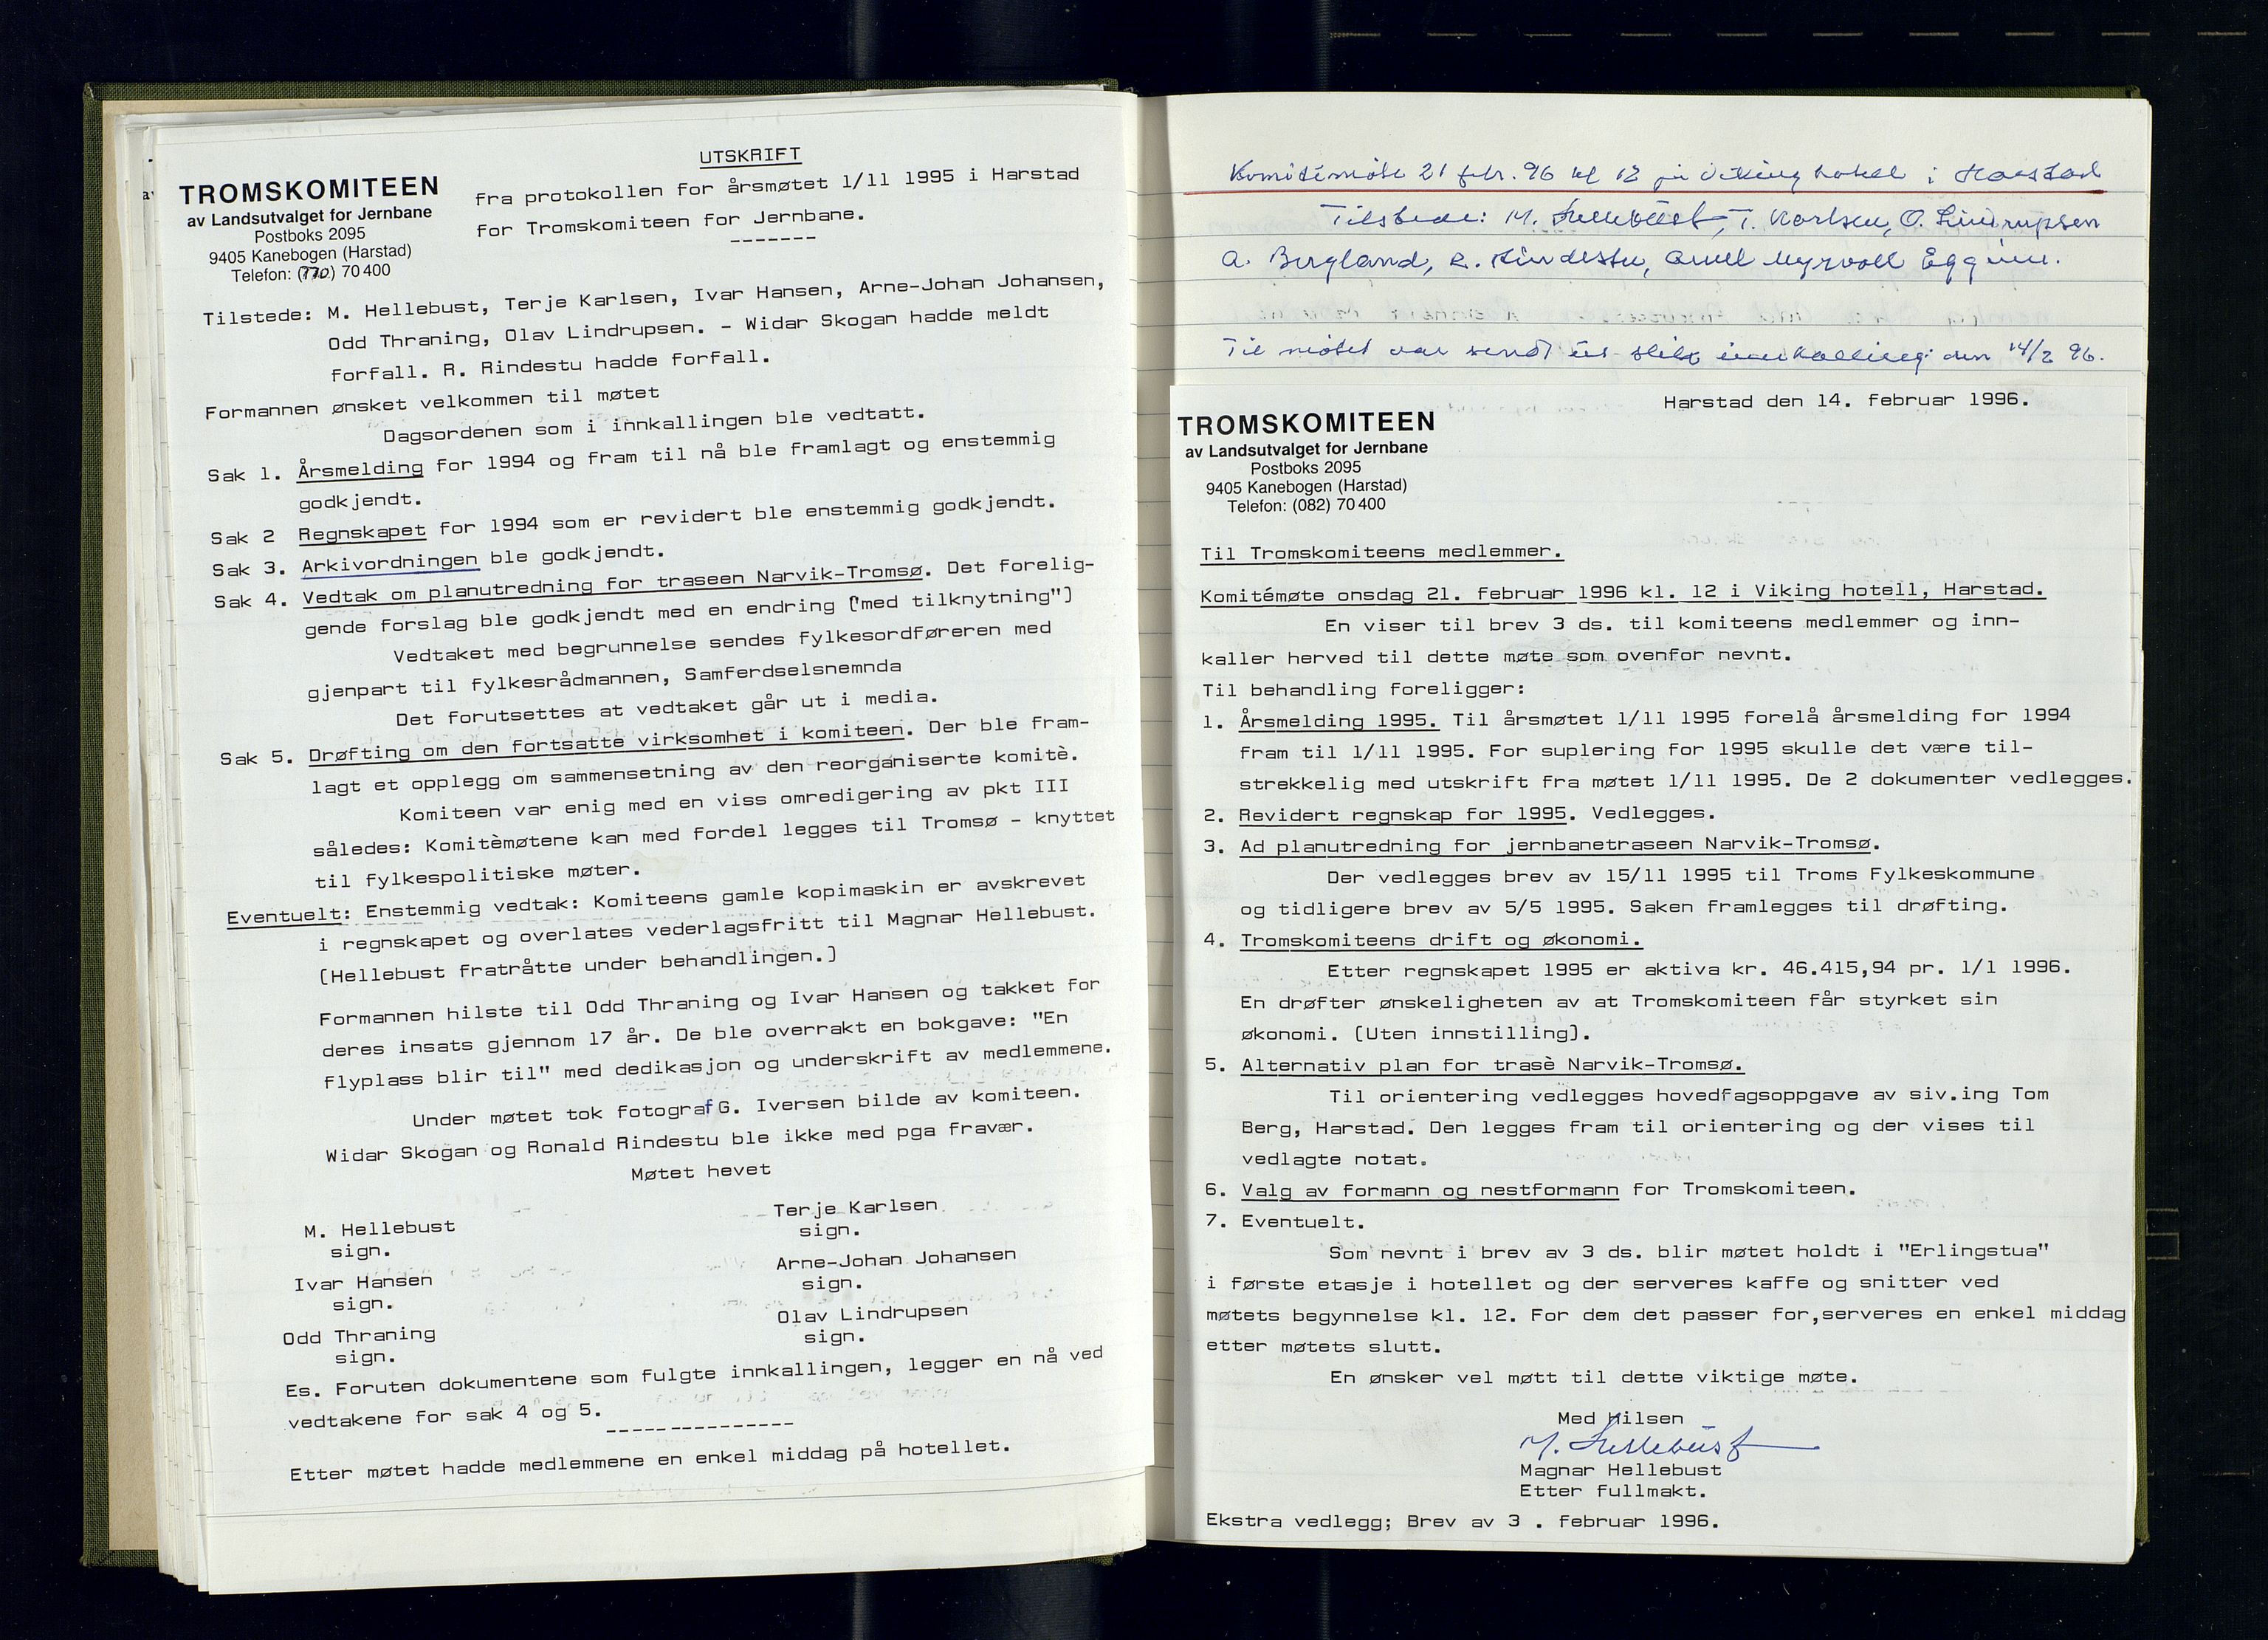 UTSKRIFT
TROMSKOMITEEN
av Landsutvalget for Jernbane
Postboks 2095
9405 Kanebogen (Harstad)
Telefon: (770) 70400
fra protokollen for årsmøtet 1/11 1995 i Harstad
for Tromskomiteen for Jernbane.
-------
Tilstede: M. Hellebust, Terje Karlsen, Ivar Hansen, Arne-Johan Johansen,
Odd Thraning, Olav Lindrupsen. - Widar Skogan hadde meldt
forfall. R. Rindestu hadde forfall.
Formannen ønsket velkommen til møtet
Dagsordenen som i innkallingen ble vedtatt.
Sak 1. Årsmelding for 1994 og fram til nå ble framlagt og enstemmig
godkjendt.
Sak 2 Regnskapet for 1994 som er revidert ble enstemmig godkjendt.
Sak 3. Arkivordningen ble godkjendt.
Sak 4. Vedtak om planutredning for traseen Narvik-Tromsø. Det forelig-
gende forslag ble godkjendt med en endring ("med tilknytning")
Vedtaket med begrunnelse sendes fylkesordføreren med
gjenpart til fylkesrådmannen, Samferdselsnemnda
Det forutsettes at vedtaket går ut i media.
Sak 5. Drøfting om den fortsatte virksomhet i komiteen. Der ble fram-
lagt et opplegg om sammensetning av den reorganiserte komitè.
Komiteen var enig med en viss omredigering av pkt III
således: Komitèmøtene kan med fordel legges til Tromsø - knyttet
til fylkespolitiske møter.
Eventuelt: Enstemmig vedtak: Komiteens gamle kopimaskin er avskrevet
i regnskapet og overlates vederlagsfritt til Magnar Hellebust.
(Hellebust fratråtte under behandlingen.)
Formannen hilste til Odd Thraning og Ivar Hansen og takket for
deres insats gjennom 17 år. De ble overrakt en bokgave: "En
flyplass blir til" med dedikasjon og underskrift av medlemmene.
Under møtet tok fotograf G. Iversen bilde av komiteen.
Widar Skogan og Ronald Rindestu ble ikke med pga fravær.
Møtet hevet
M. Hellebust
sign.
Terje Karlsen
sign.
Ivar Hansen
sign.
Arne-Johan Johansen
sign.
Odd Thraning
sign.
Olav Lindrupsen
sign.
Es. Foruten dokumentene som fulgte innkallingen, legger en nå ved
vedtakene for sak 4 og 5.
---------------
Etter møtet hadde medlemmene en enkel middag på hotellet.
Komitémøte 21 febr. 96 kl 12 på Viking hotell i Harstad
Tilstede: M. Hellebust, T. Karlsen, O. Lindrupsen
A. Bergland, R. Rindestu, Arnel Myrvoll
Til møtet var sendt ut slik innkalling den 14/2 96.
Harstad den 14. februar 1996.
TROMSKOMITEEN
av Landsutvalget for Jernbane
Postboks 2095
9405 Kanebogen (Harstad)
Telefon: (082) 70400
Til Tromskomiteens medlemmer.
Komitémøte onsdag 21. februar 1996 kl. 12 i Viking hotell, Harstad.
En viser til brev 3 ds. til komiteens medlemmer og inn-
kaller herved til dette møte som ovenfor nevnt.
Til behandling foreligger:
1. Årsmelding 1995. Til årsmøtet 1/11 1995 forelå årsmelding for 1994
fram til 1/11 1995. For suplering for 1995 skulle det være til-
strekkelig med utskrift fra møtet 1/11 1995. De 2 dokumenter vedlegges.
2. Revidert regnskap for 1995. Vedlegges.
3. Ad planutredning for jernbanetraseen Narvik-Tromsø.
Der vedlegges brev av 15/11 1995 til Troms Fylkeskommune
og tidligere brev av 5/5 1995. Saken framlegges til drøfting.
4. Tromskomiteens drift og økonomi.
Etter regnskapet 1995 er aktiva kr. 46.415,94 pr. 1/1 1996.
En drøfter ønskeligheten av at Tromskomiteen får styrket sin
økonomi. (Uten innstilling).
5. Alternativ plan for trasè Narvik-Tromsø.
Til orientering vedlegges hovedfagsoppgave av siv.ing Tom
Berg, Harstad. Den legges fram til orientering og der vises til
vedlagte notat.
6. Valg av formann og nestformann for Tromskomiteen.
7. Eventuelt.
Som nevnt i brev av 3 ds. blir møtet holdt i "Erlingstua"
i første etasje i hotellet og der serveres kaffe og snitter ved
møtets begynnelse kl. 12. For dem det passer for,serveres en enkel middag
etter møtets slutt.
En ønsker vel møtt til dette viktige møte.
Med Hilsen
M. Hellebust
Magnar Hellebust
Etter fullmakt.
Ekstra vedlegg; Brev av 3 . februar 1996.